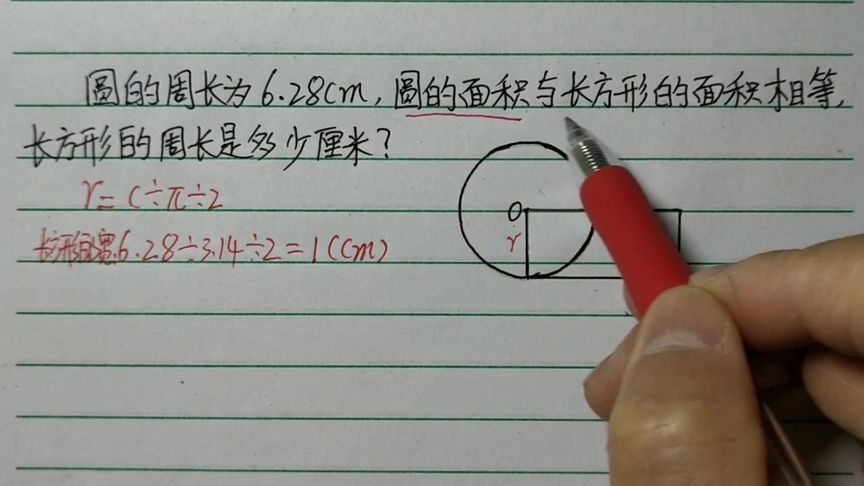 圆的周长为6.28cm,圆的面积与长方形的面积相等,
长方形的周长是多少厘米?
r=C÷π÷2
长方形的宽:6.28÷3.14÷2=1(cm)
O
r